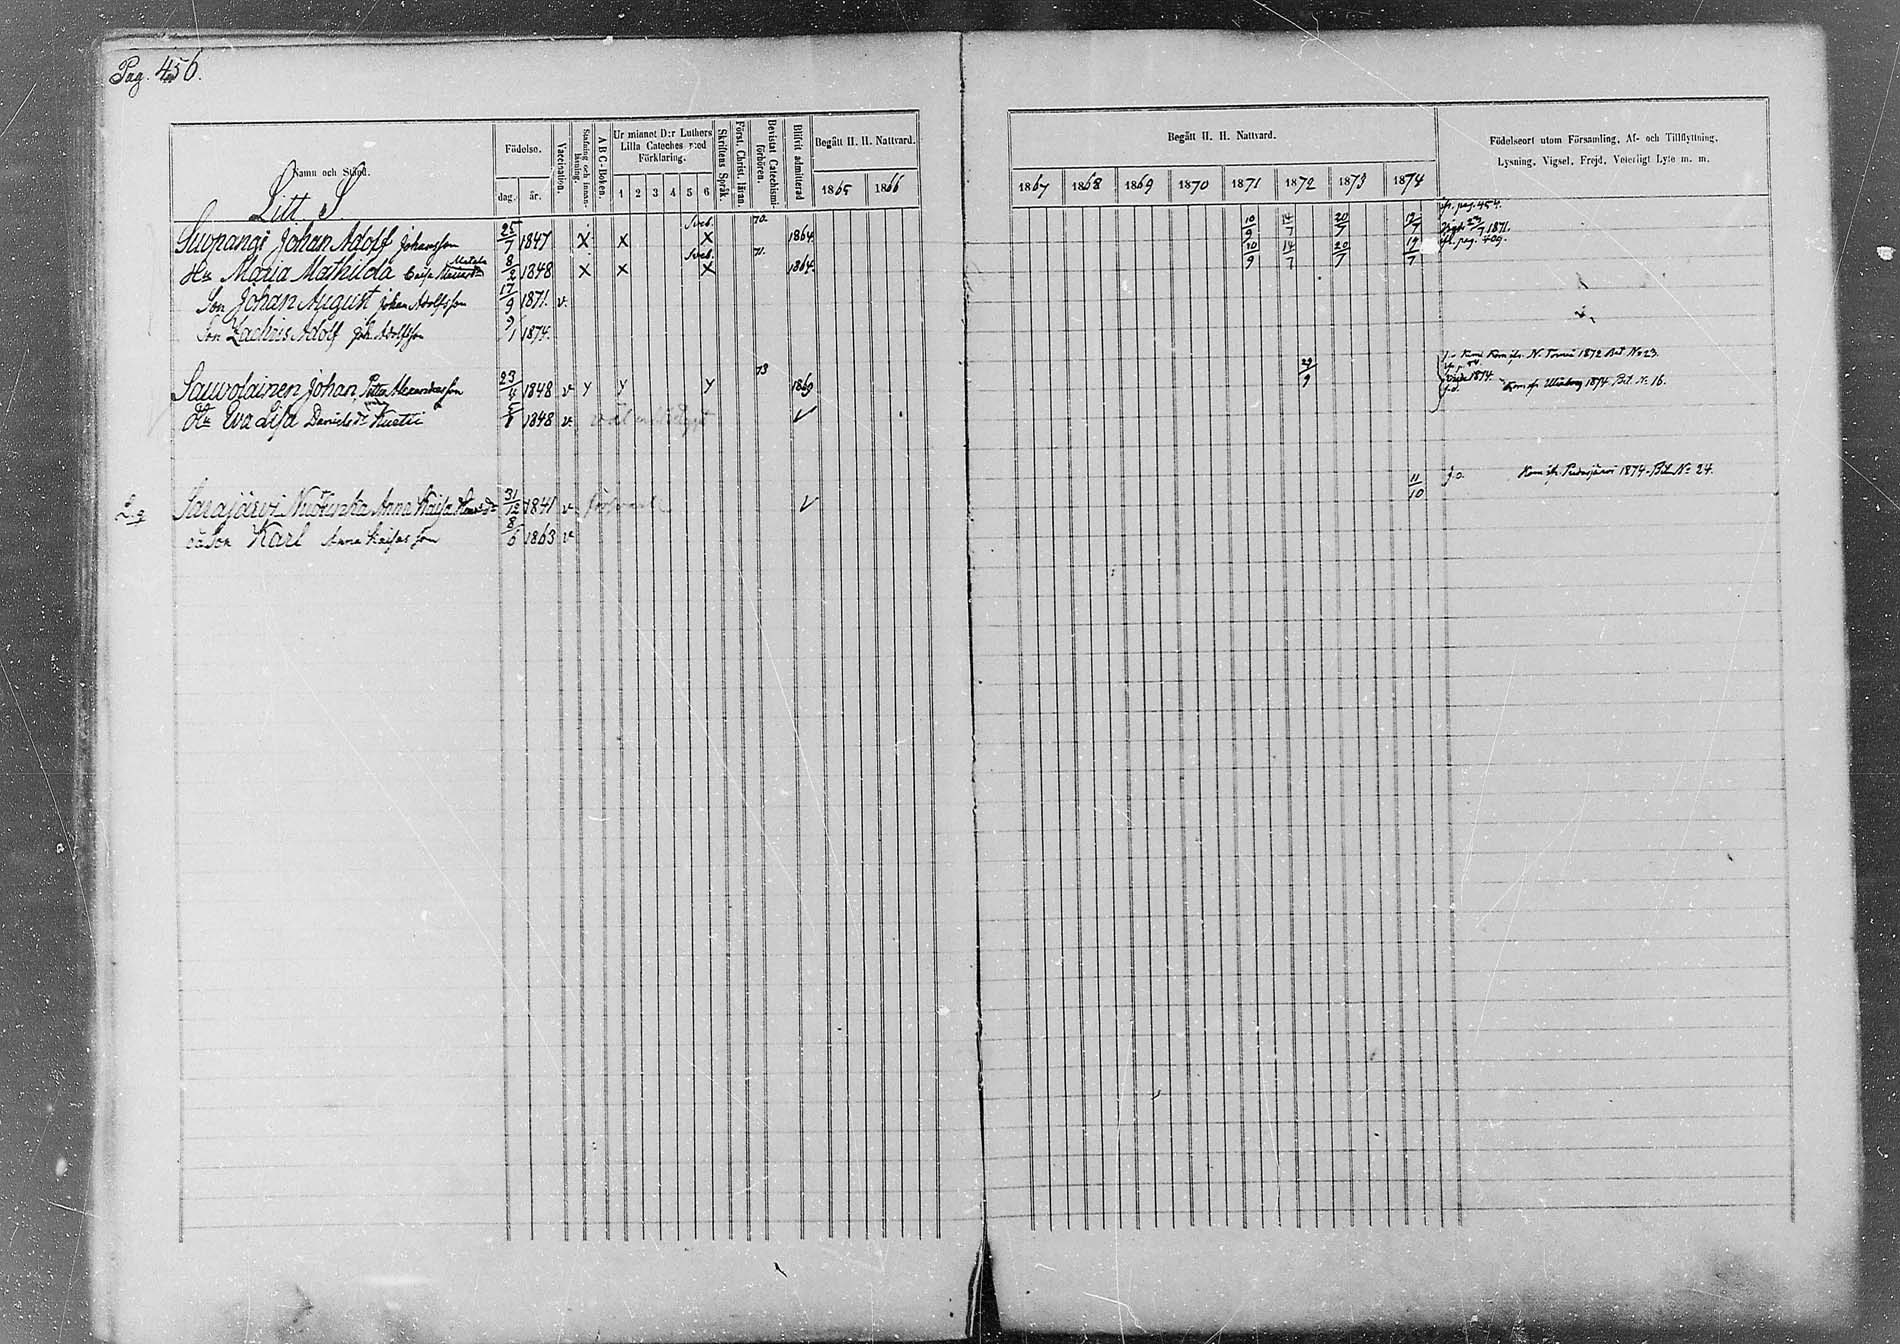 Pag. 456.
Namn och Stånd.
Födelse.
dag. år.
Vaccination.
Stafning och innanläsning.
A B C-Boken.
Ur minnet D:r Luthers Lilla Cateches med Förklaring.
1 2 3 4 5 6
Skriftens Språk.
Först. Christ. läran.
Bevistat Catechismi-förhören.
Blifvit admitterad
Begått H. H. Nattvard.
1865 1866
Begått H. H. Nattvard.
1867 1868 1869 1870 1871 1872 1873 1874
Födelseort utom Församling, Af- och Tillflyttning,
Lysning, Vigsel, Frejd, Veterligt Lyte m. m.
Litt S
Suopangi Johan Adolf Johansson 25/7 1847 X X Sveb. X 70. 1864 10/9 14/7 20/7 12/7 pag. 454. 1871.
Hu Maria Mathilda Matala 8/2 1848 X X Sveb. X 71. 1864. 10/9 14/7 20/7 12/7 pag. 409.
Son Johan August Johan Adolfsson 17/9 1871. v.
Son Zachris Adolf Joh. Adolfsson 9/1 1874.
Kom ifr. N. Torneå 1872 Bet No 23.
Sauvolainen Johan Petter Alexandersson 23/4 1848 v y y y 73 1869 29/9 1874. Kom fr. Uleåborg 1874 Bet. No 16.
Hu Eva Lisa Daniels dr 1848 v.
Sarajärvi Anna Kaisa 31/12 1841 v 11/10 Kom ifr. Pudasjärvi 1874. Bet No 24.
oä Son Karl Anna Kaisas son 8/6 1863 v.